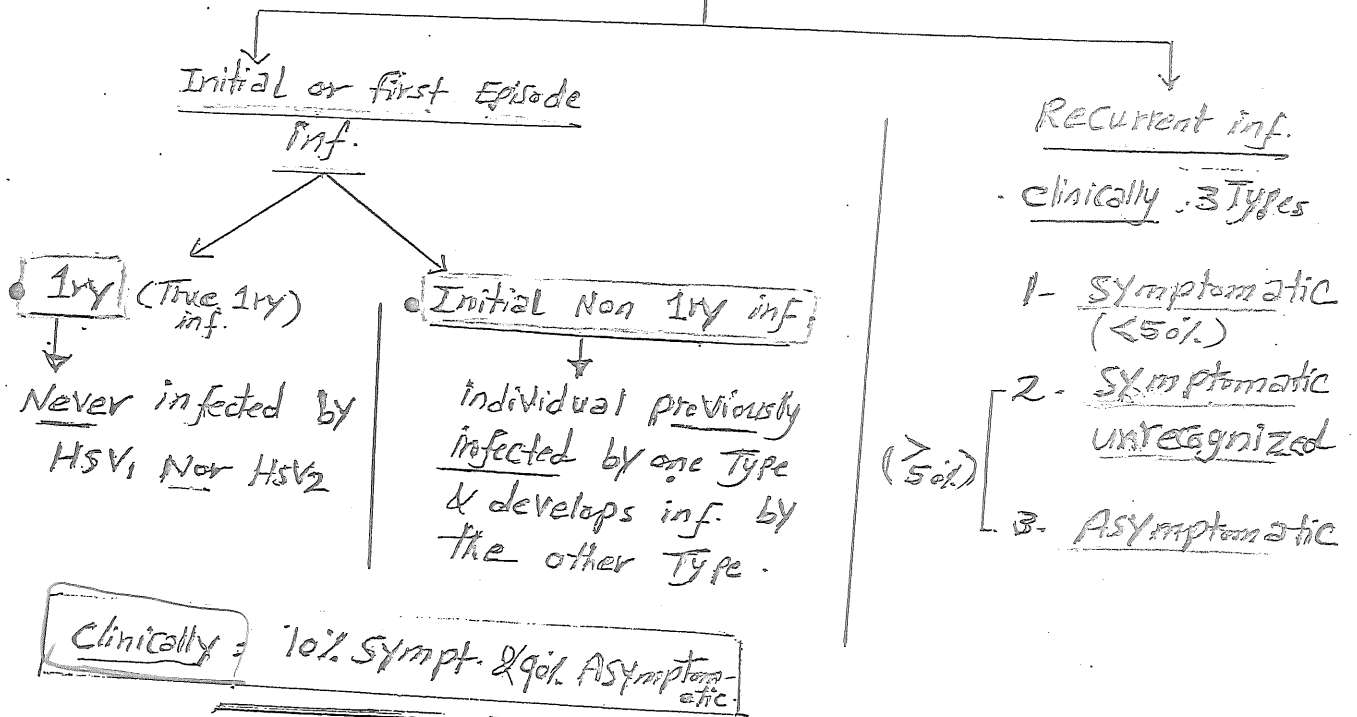 Initial or first Episode
inf.
1ry (True 1ry)
inf.
Never infected by
HSV1 Nor HSV2
Initial Non 1ry inf.
individual previously
infected by one Type
& develops inf. by
the other Type.
Clinically: 10% Sympt. & 90% Asymptom-
atic.
Recurrent inf.
clinically : 3 Types
1- Symptomatic
(<50%)
2- Symptomatic
unrecognized
(>50%)
3- Asymptomatic